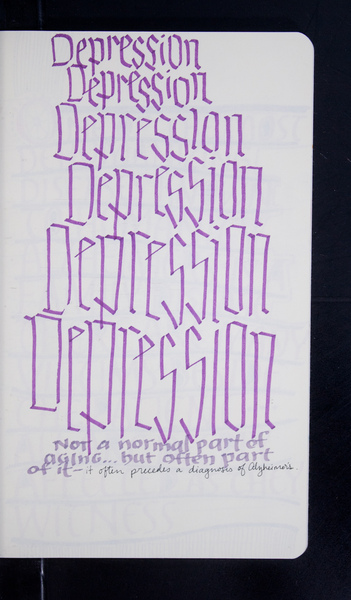 Depression
Depression
Depression
Depression
Depression
Depression
Not a normal part of
aging... but often part
of it - it often precedes a diagnosis of Alzheimer's.